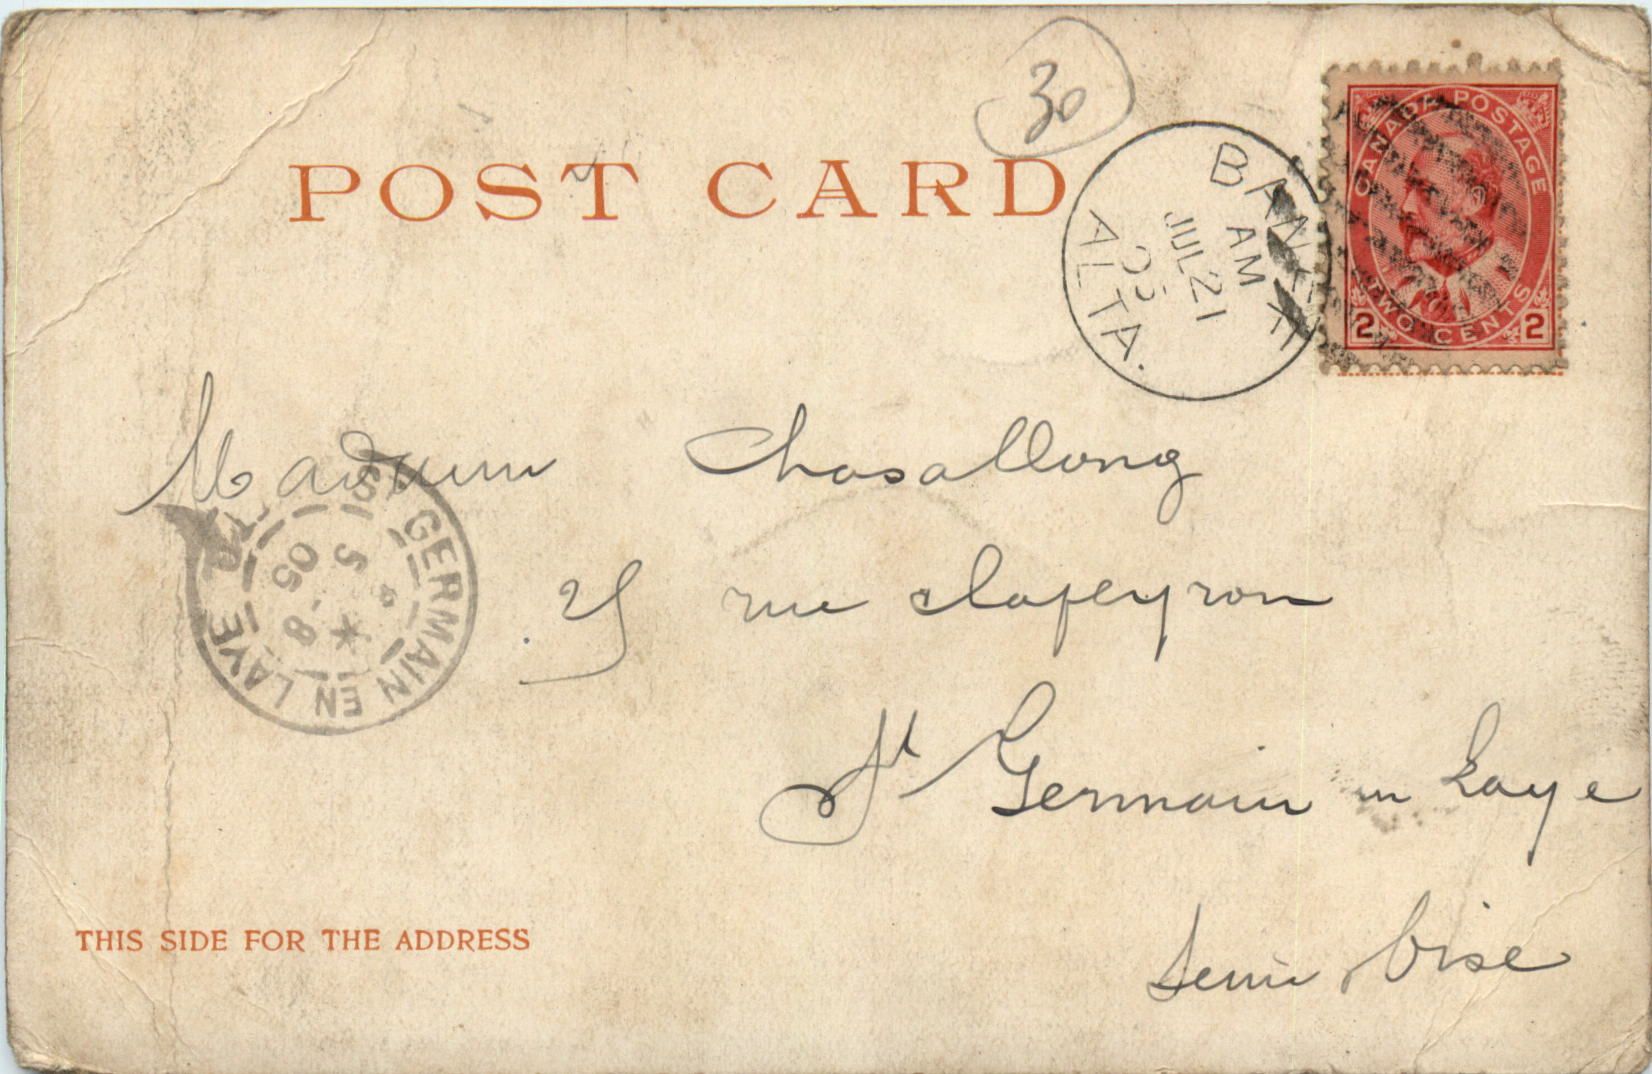 30
POST CARD
BANFF
AM
JUL 21
05
ALTA.
CANADA POSTAGE
2 TWO CENTS 2
Madame Chasallong
rue Clapeyron
St Germain en Laye
Seine Oise
ST GERMAIN EN LAYE
5
8
05
THIS SIDE FOR THE ADDRESS